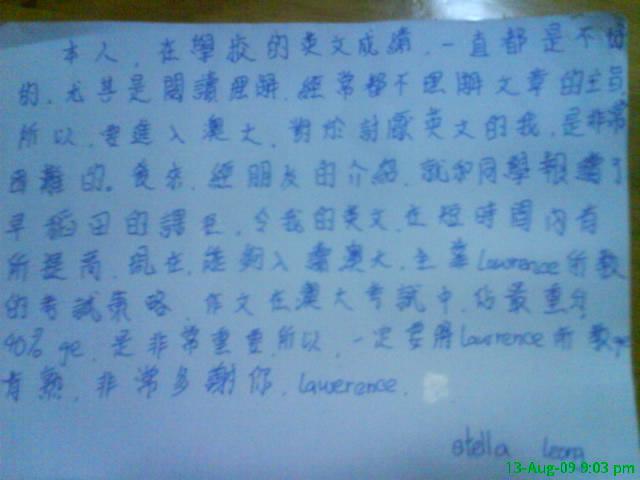 本人，在學校的英文成績，一直都是不好
的，尤其是閱讀理解，經常都不理解文章的主旨，
所以，要進入澳大，對於討厭英文的我，是非常
困難的。後來，經朋友的介紹，就和同學報讀了
早稻田的課程，令我的英文，在短時間內有
所提高，現在，能夠入讀澳大，全靠Lawrence所教
的考試策略，作文在澳大考試中，佔最重分
40% ge，是非常重要，所以，一定要將Lawrence所教ge
有熟，非常多謝你，Lawerence，
stella Leong
13-Aug-09 9:03 pm